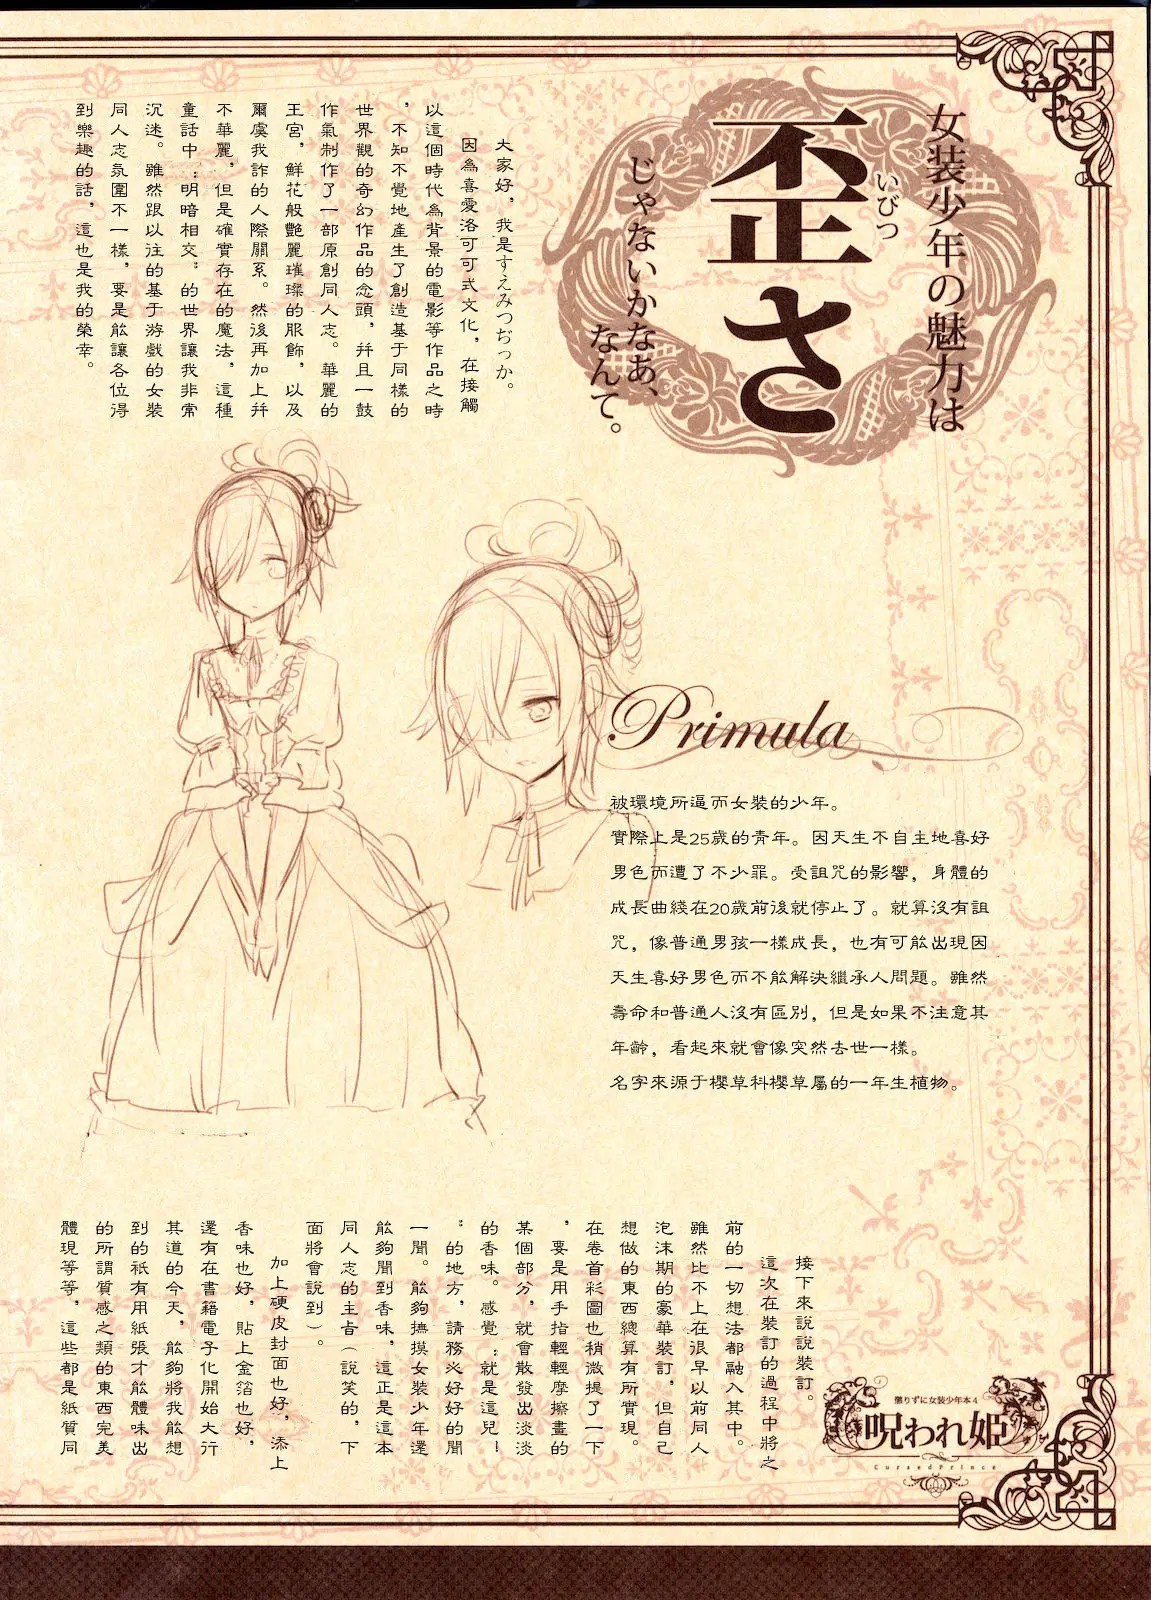 女装少年の魅力は
いびつ
歪さ
じゃないかなあ、
なんて。
大家好，我是すえみつぢっか。
因為喜愛洛可可式文化，在接觸
以這個時代為背景的電影等作品之時
，不知不覺地產生了創造基于同樣的
世界觀的奇幻作品的念頭，并且一鼓
作氣制作了一部原創同人志。華麗的
王宮，鮮花般艷麗璀璨的服飾，以及
爾虞我詐的人際關系。然後再加上并
不華麗，但是確實存在的魔法，這種
童話中“明暗相交”的世界讓我非常
沉迷。雖然跟以往的基于游戲的女裝
同人志氛圍不一樣，要是能讓各位得
到樂趣的話，這也是我的榮幸。
Primula
被環境所逼而女裝的少年。
實際上是25歲的青年。因天生不自主地喜好
男色而遭了不少罪。受詛咒的影響，身體的
成長曲綫在20歲前後就停止了。就算沒有詛
咒，像普通男孩一樣成長，也有可能出現因
天生喜好男色而不能解決繼承人問題。雖然
壽命和普通人沒有區別，但是如果不注意其
年齡，看起來就會像突然去世一樣。
名字來源于櫻草科櫻草屬的一年生植物。
接下來說說裝訂。
這次在裝訂的過程中將之
前的一切想法都融入其中。
雖然比不上在很早以前同人
泡沫期的豪華裝訂，但自己
想做的東西總算有所實現。
在卷首彩圖也稍微提了一下
，要是用手指輕輕摩擦畫的
某個部分，就會散發出淡淡
的香味。感覺“就是這兒！
”的地方，請務必好好的聞
一聞。能夠撫摸女裝少年還
能夠聞到香味，這正是這本
同人志的主旨（說笑的，下
面將會說到）。
加上硬皮封面也好，添上
香味也好，貼上金箔也好，
還有在書籍電子化開始大行
其道的今天，能夠將我能想
到的衹有用紙張才能體味出
的所謂質感之類的東西完美
體現等等，這些都是紙質同
懲りずに女装少年本4
呪われ姫
CursedPrince